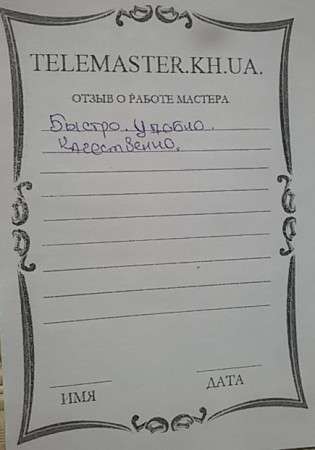 TELEMASTER.KH.UA.
ОТЗЫВ О РАБОТЕ МАСТЕРА
Быстро. Удобно.
Качественно.
ИМЯ
ДАТА